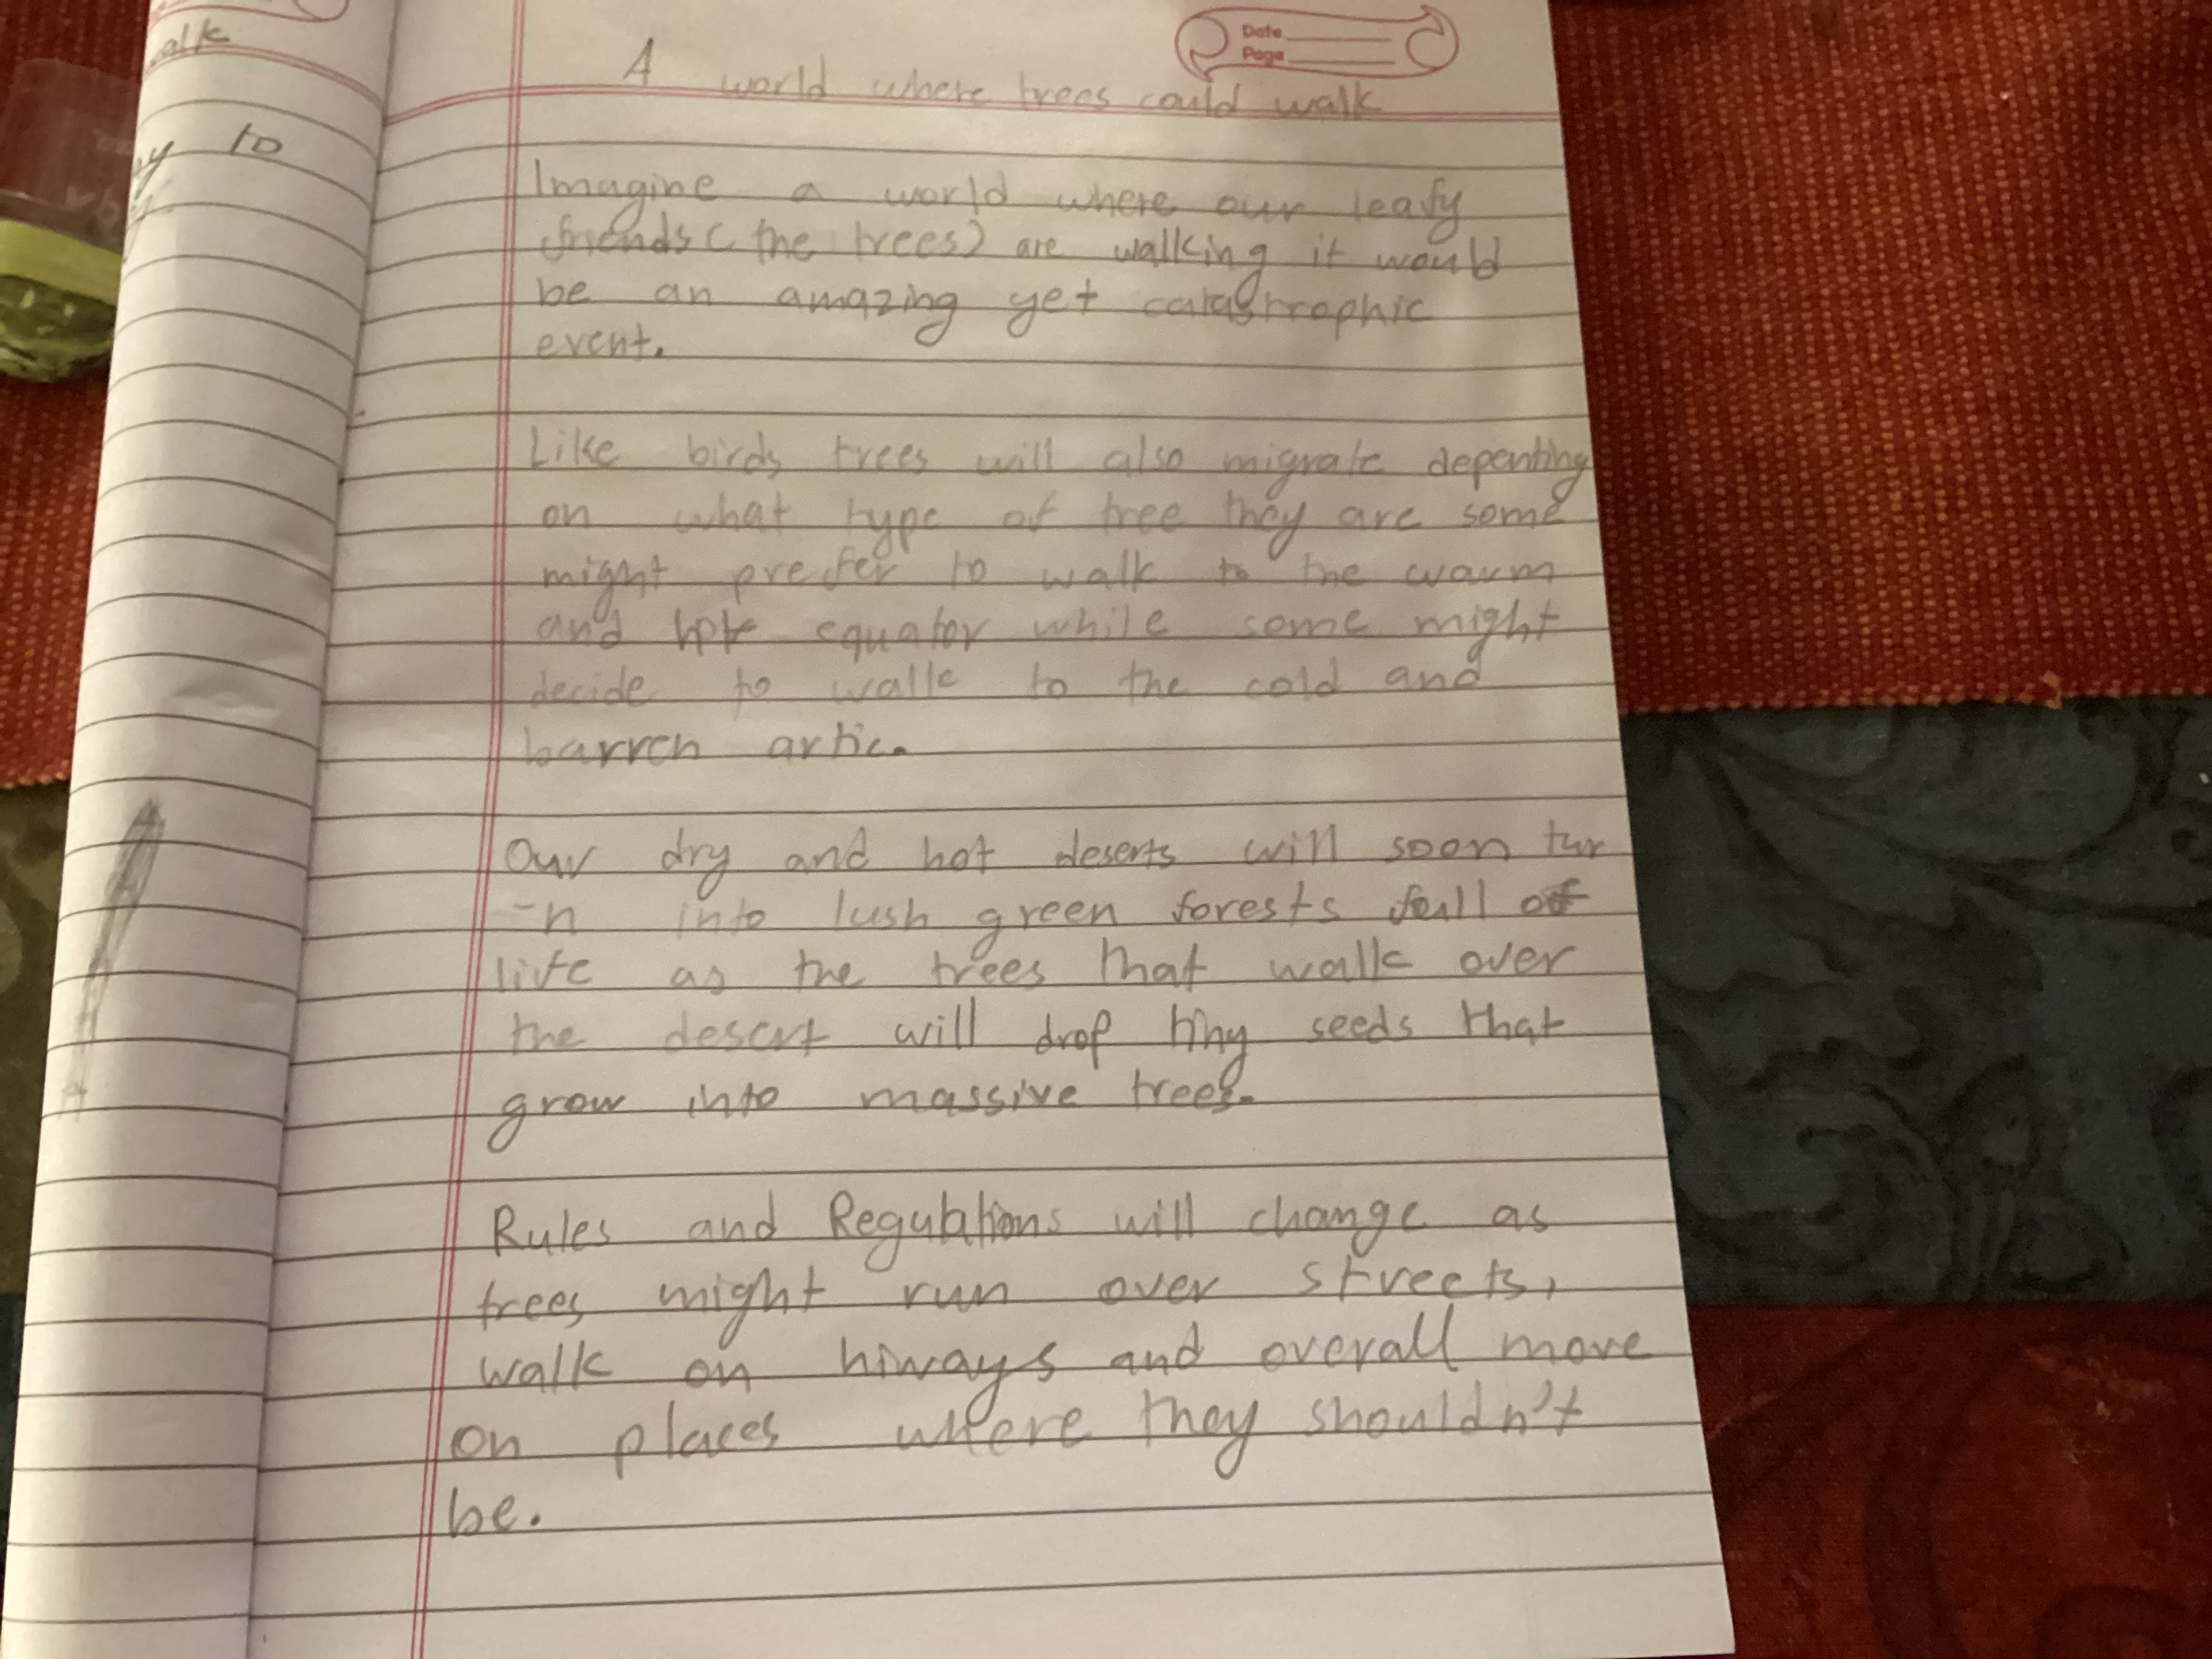 alk
to
Date
Page
A world where trees could walk
Imagine a world where our leafy
friends ( the trees) are walking it would
be an amazing yet catastrophic
event.
Like birds trees will also migrate depending
on what type of tree they are some
might prefer to walk to the warm
and hot equator while some might
decide to walk to the cold and
barren artic.
Our dry and hot deserts will soon tur
-n into lush green forests full of
life as the trees that walk over
the desert will drop tiny seeds that
grow into massive trees.
Rules and Regulations will change as
trees might run over streets,
walk on hiways and overall move
on places where they shouldn't
be.